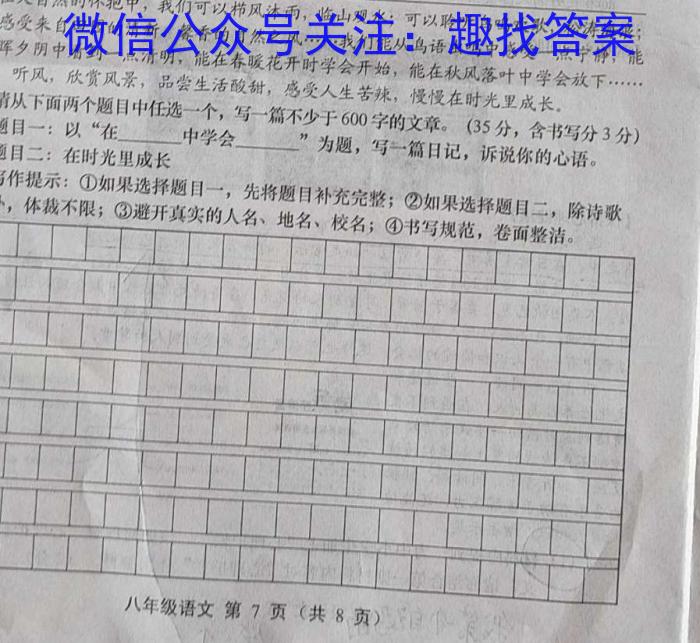 在大自然的怀抱中，我们可以栉风沐雨，临山观水；可以聆
感受来自
微信公众号关注：趣找答案
晖夕阴中看到一点清明，能在春暖花开时学会开始，能在秋风落叶中学会放下……
听风，欣赏风景，品尝生活酸甜，感受人生苦辣，慢慢在时光里成长。
请从下面两个题目中任选一个，写一篇不少于600字的文章。（35分，含书写分3分）
题目一：以“在______中学会______”为题，写一篇日记，诉说你的心语。
题目二：在时光里成长
写作提示：①如果选择题目一，先将题目补充完整；②如果选择题目二，除诗歌
外，体裁不限；③避开真实的人名、地名、校名；④书写规范，卷面整洁。
八年级语文 第 7 页（共 8 页）